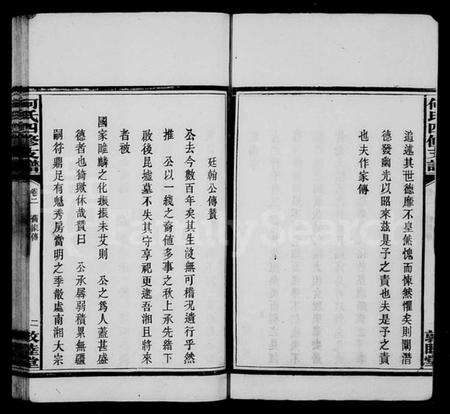 何氏四修支譜
追述其世德靡不皇然愧而悚然懼矣則闡潛
德發幽光以昭來茲是子之責也夫是子之責
也夫作家傳
敦睦堂
廷翰公傳贊
公去今數百年矣其生沒無可稽況遺行乎然
推 公以一綫之裔値多事之秋上承先緒下
啟後昆墳墓不失其守享祀更逮吾湘且將來
者被
國家雎麟之化振振未艾則 公之為人蓋甚盛
德者也猗歟休哉贊曰 公承孱弱積累無疆
嗣符鼎足有魁秀房當明之季散處南湘大宗
何氏四修支譜
卷二 舊家傳
二
敦睦堂